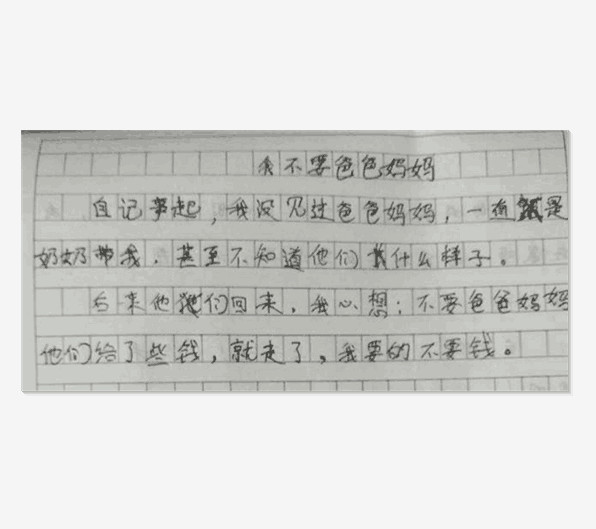 我不要爸爸妈妈
自记事起，我没见过爸爸妈妈，一直是
奶奶带我．甚至不知道他们长什么样子。
后来他们回来．我心想：不要爸爸妈妈
他们给了些钱，就走了，我要的不要钱。